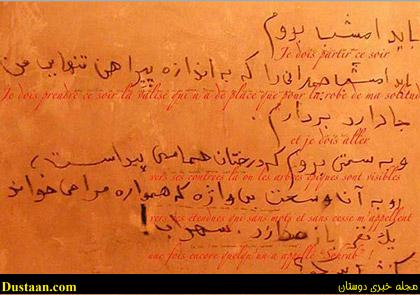 باید امشب بروم
Je dois partir ce soir
باید امشب چمدانی را که به اندازه پیراهن تنهایی من
Je dois prendre ce soir la valise qui n'a de place que pour la robe de ma solitude
جا دارد بردارم.
et je dois aller
و به سمتی بروم که درختان حماسی پیداست،
vers ses contrées là où les arbres épiques sont visibles
رو به آن وسعت بی واژه که همواره مرا می خواند
vers ses étendues qui sans mots et sans cesse m'appellent
یک نفر باز صدا زد: سهراب!
une fois encore quelqu'un a appelé "Sohrab"!
Dustaan.com
مجله خبری دوستان